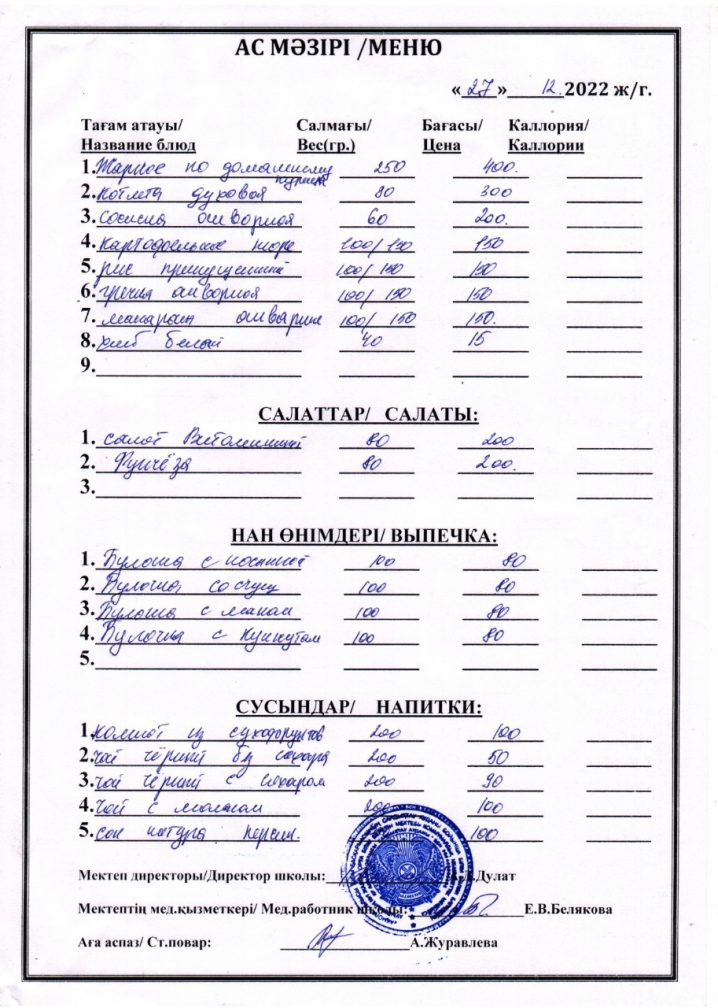 АС МӘЗІРІ /МЕНЮ
«27» 12. 2022 ж/г.
Тағам атауы/ Салмағы/ Бағасы/ Каллория/
Название блюд Вес(гр.) Цена Каллории
1. Жаркое по домашнему 250 400.
курица
2. Котлета духовая 80 300
3. Сосиска отварная 60 200.
4. Картофельное пюре 100/150 150
5. рис припущенный 100/150 150
6. гречка отварная 100/150 150
7. макароны отварные 100/150 150.
8. хлеб белый 40 15
9.
САЛАТТАР/ САЛАТЫ:
1. салат Витаминный 80 200
2. Фунчёза 80 200.
3.
НАН ӨНІМДЕРІ/ ВЫПЕЧКА:
1. Булочка с 100 80
2. Булочка со сгущ 100 80
3. Булочка с маком 100 80
4. Булочка с кунжутом 100 80
5.
СУСЫНДАР/ НАПИТКИ:
1. компот из сухофруктов 200 100
2. чай чёрный без сахара 200 50
3. чай чёрный с сахаром 200 90
4. Чай с молоком 200 100
5. сок 100
Мектеп директоры/Директор школы: Дулат
Мектептің мед.қызметкері/ Мед.работник школы: Е.В.Белякова
Аға аспаз/ Ст.повар: А.Журавлева